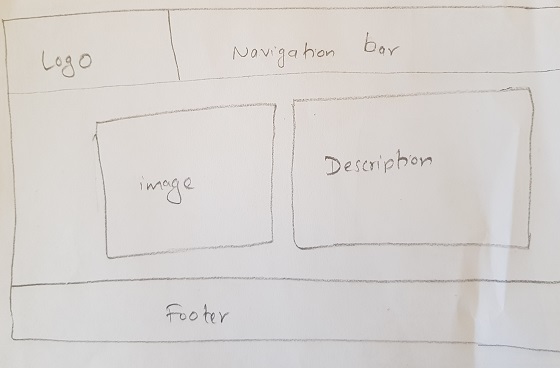 Logo
Navigation bar
image
Description
Footer